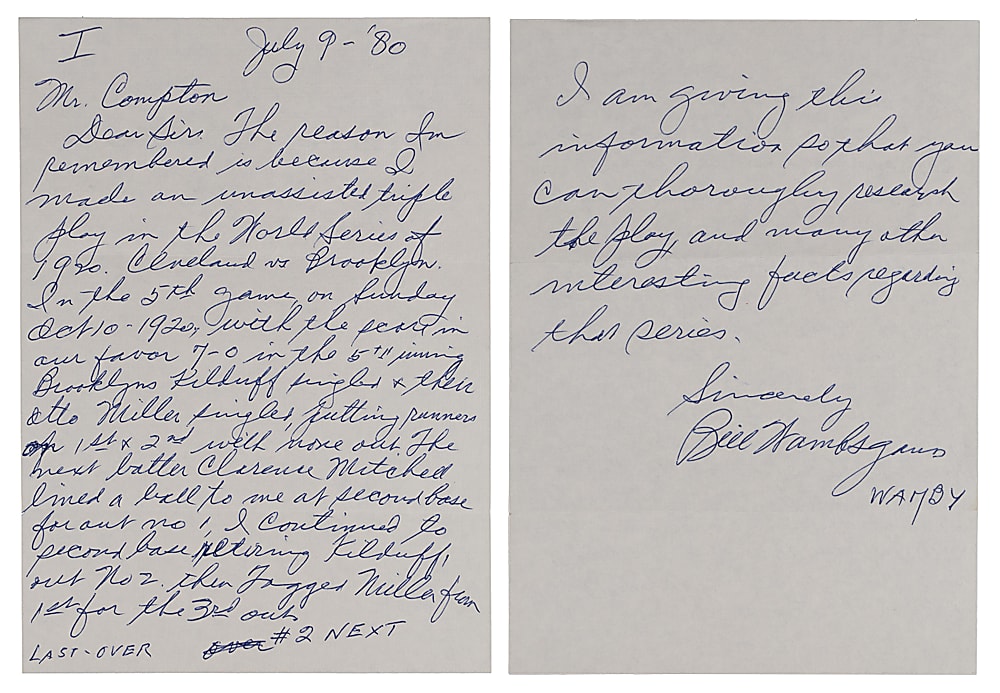 I July 9 - '80
Mr. Compton
Dear Sir. The reason Im
remembered is because I
made an unassisted triple
play in the World Series of
1920. Cleveland vs Brooklyn.
In the 5th game, on Sunday
Oct 10 - 1920, with the score in
our favor 7-0 in the 5TH inning
Brooklyns Kilduff singled & then
Otto Miller singled, putting runners
on 1st & 2nd with none out. The
next batter Clarence Mitchell
lined a ball to me at second base
for out no 1, I continued to
second base retiring Kilduff,
out No 2. then Tagged Miller from
1st for the 3rd out.
LAST-OVER over #2 NEXT
I am giving this
information so that you
can thoroughly research
the play, and many other
interesting facts regarding
that series.
Sincerely
Bill Wambsganss
WAMBY